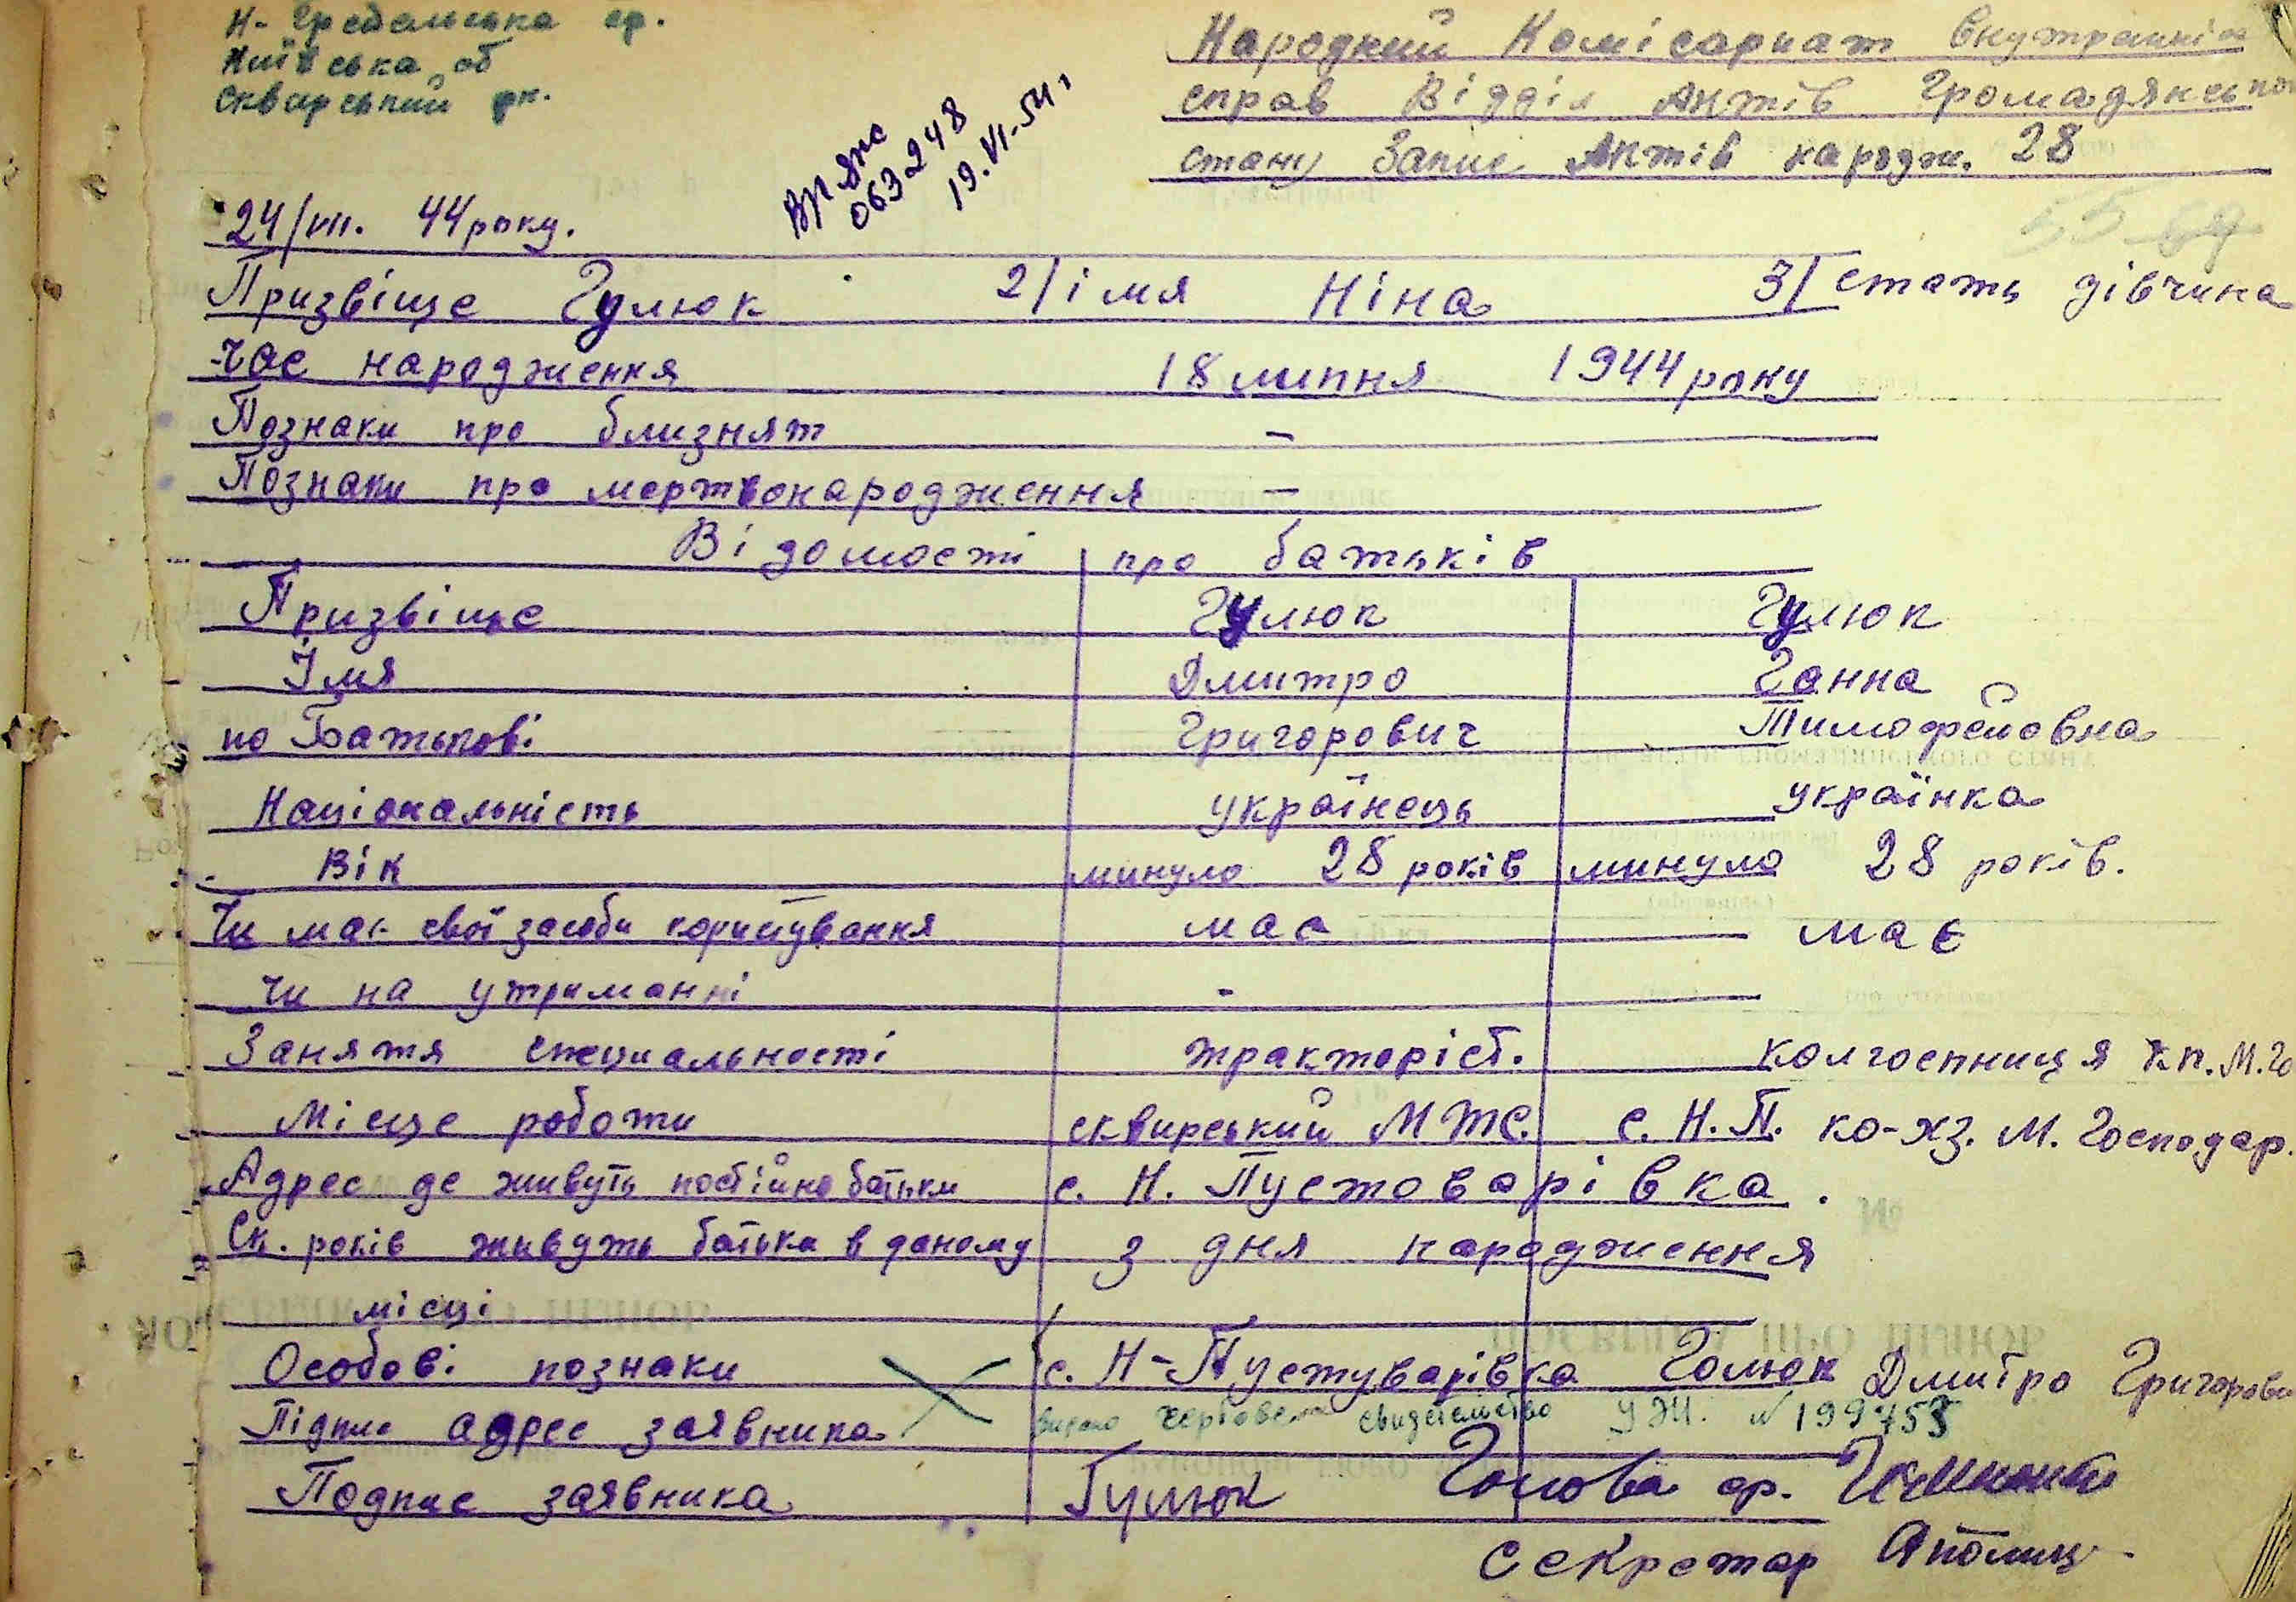 Н-Гребельська ср.
Київська об
Сквирський рн.
Народний Комісаріат Внутрішніх
справ Відділ Актів Громадянського
стану Запис Актів народж. 28
063248
19.VI-54 г
55 69
24/VII. 44 року.
Призвіще Гулюк 2/ імя Ніна 3/ стать дівчина
час народження 18 липня 1944 року
Познаки про близнят –
Познаки про мертвонародження –
Відомості про батьків
Призвіще Гулюк Гулюк
Імя Дмитро Ганна
по Батькові Григорович Тимофейовна
Національність українець українка
Вік минуло 28 років минуло 28 років.
Чи має свої засоби користування має має
чи на утриманні -
Заняття специальності тракторіст. колгоспниця кп. М.Го
Місце роботи сквирський МТС. с. Н.П. ко-хз. М. Господар.
Адрес де живуть постійно батьки с. Н. Пустоварівка.
Ск. років живуть батьки в даному з дня народження
місці
Особові познаки с. Н-Пустуварівка Голюк Дмитро Григорови
Підпис адрес заявника свидетельство УЖ. N 199755
Подпис заявника Гулюк Голова ср.
Секретар